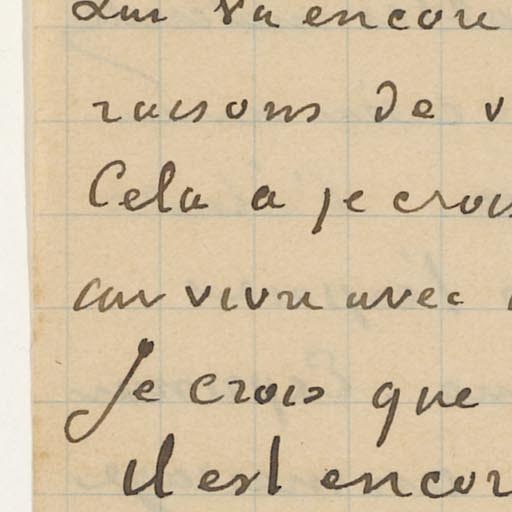 qui va encore
raisons de v
Cela a je crois
car vivre avec
Je crois que
il est encor